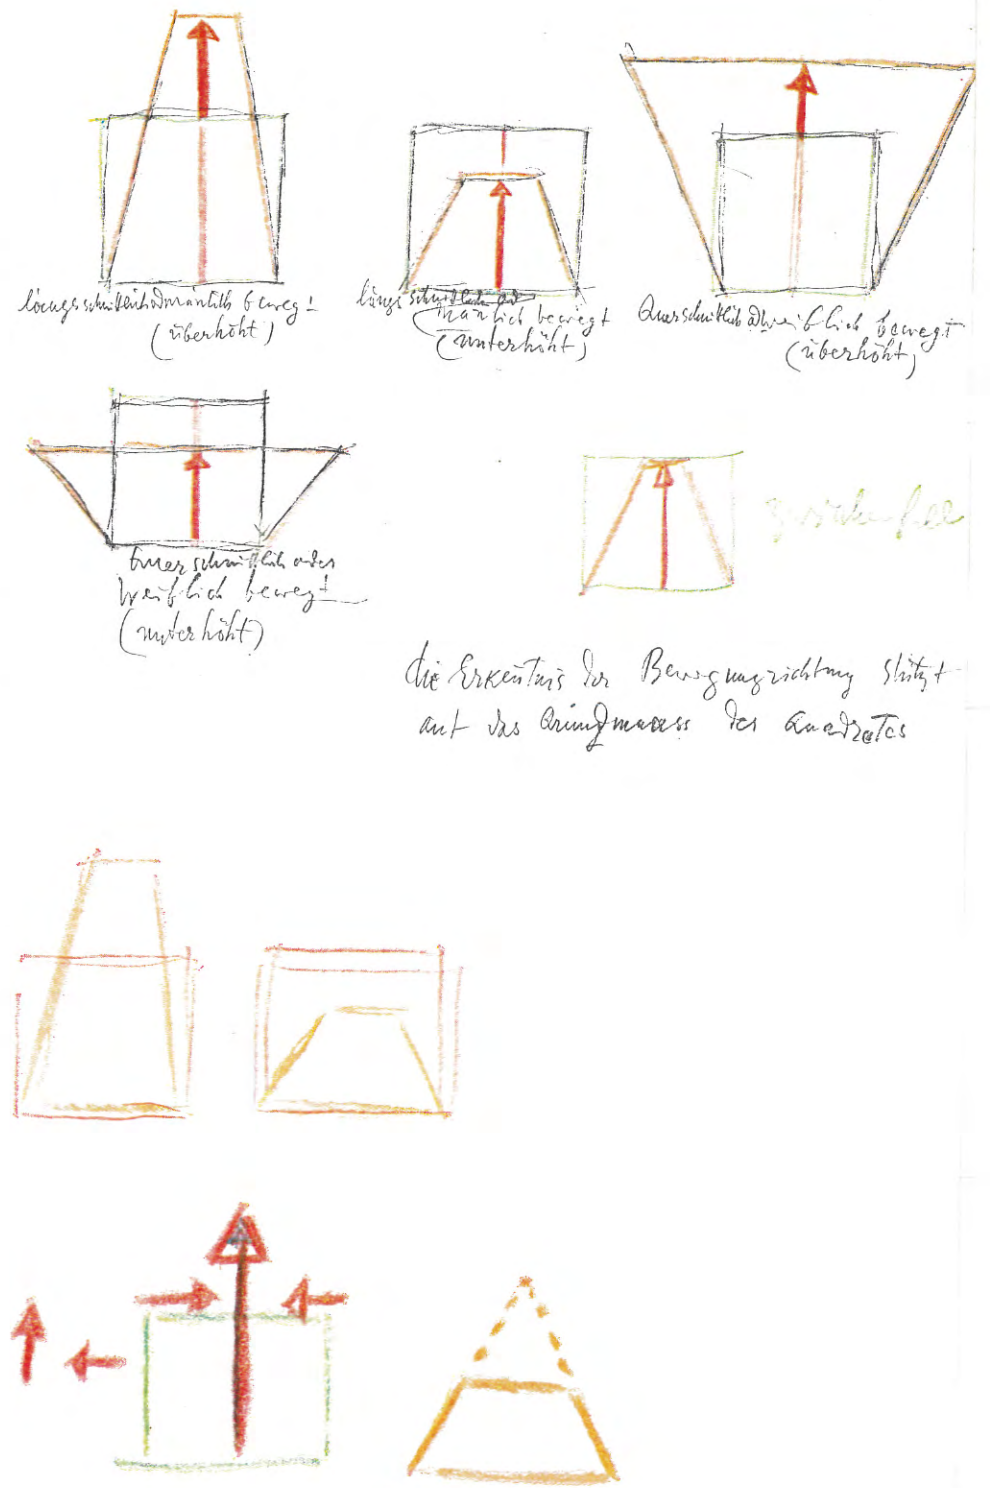 längsschnittlich od männlich bewegt
(überhöht)
längsschnittlich od
männlich bewegt
(unterhöht)
Querschnittlich od weiblich bewegt
(überhöht)
Querschnittlich oder
weiblich bewegt
(unterhöht)
die Erkentnis der Bewegungsrichtung stützt
auf das Grundmaass des Quadrates